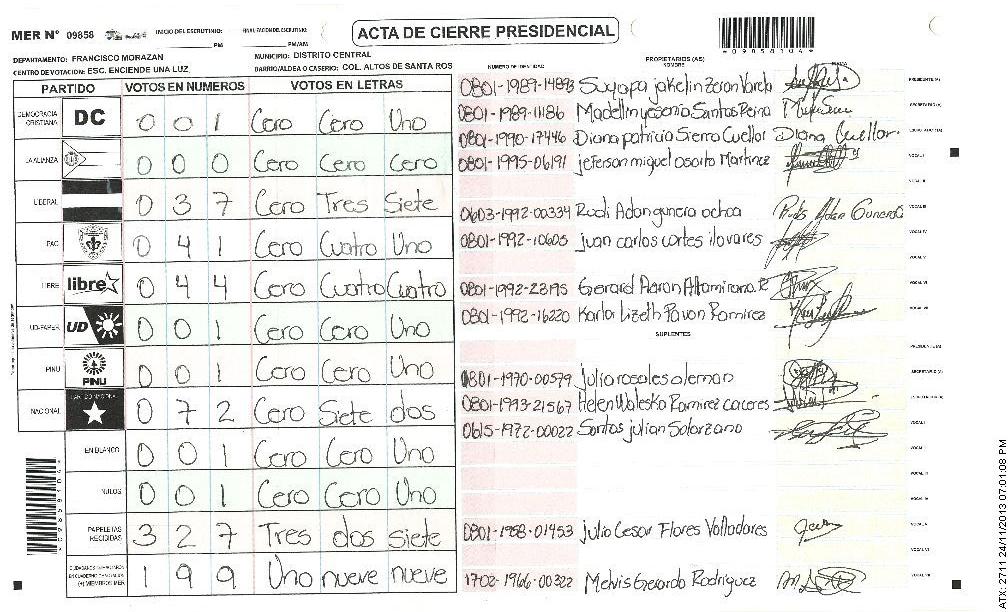 MER Nº 09858 INICIO DEL ESCRUTINIO: PM FINALIZACION DEL ESCRUTINIO: PM/AM
ACTA DE CIERRE PRESIDENCIAL
09859104
DEPARTAMENTO: FRANCISCO MORAZAN MUNICIPIO: DISTRITO CENTRAL
CENTRO DE VOTACION: ESC. ENCIENDE UNA LUZ BARRIO/ALDEA O CASERIO: COL. ALTOS DE SANTA ROS
PARTIDO VOTOS EN NUMEROS VOTOS EN LETRAS
DEMOCRACIA CRISTIANA DC 0 0 1 Cero Cero Uno
LA ALIANZA 0 0 0 Cero Cero Cero
LIBERAL 0 3 7 Cero Tres Siete
PAC 0 4 1 Cero Cuatro Uno
LIBRE libre 0 4 4 Cero Cuatro Cuatro
UD-FAPER UD 0 0 1 Cero Cero Uno
PINU PINU 0 0 1 Cero Cero Uno
NACIONAL 0 7 2 Cero Siete dos
EN BLANCO 0 0 1 Cero Cero Uno
NULOS 0 0 1 Cero Cero Uno
PAPELETAS RECIBIDAS 3 2 7 Tres dos siete
(+) MIEMBROS MER 1 9 9 Uno nueve nueve
NUMERO DE IDENTIDAD PROPIETARIOS (AS) NOMBRE FIRMA
Suyapa jakelin Zeron Varela PRESIDENTE (A)
0801-1989-11186 Madellin yesenia Santos Peina SECRETARIO (A)
0801-1990-17446 Diana patricia Sierra Cuellar Diana Cuellar
0801-1995-06191 jeferson miguel osorto Martinez VOCAL I
VOCAL II
0603-1992-00334 Rudi Adan gunera ochoa VOCAL III
0801-1992-10605 juan carlos cortes ilovares VOCAL IV
VOCAL V
0801-1992-23195 Gerard Aaron Altamirano R VOCAL VI
0801-1992-16220 Karla Lizeth Pavon Ramirez VOCAL VII
SUPLENTES
PRESIDENTE (A)
0801-1970-00579 julio rosales aleman SECRETARIO (A)
0801-1993-21567 Helen Waleska Ramirez caceres
0615-1972-00022 Santos julian Solorzano VOCAL I
VOCAL II
VOCAL III
VOCAL IV
0801-1958-01453 Julio Cesar Flores Valladares VOCAL V
VOCAL VI
1702-1966-00322 Melvis Gerardo Rodriguez VOCAL VII
ATX 2711 24/11/2013 07:01:08 PM